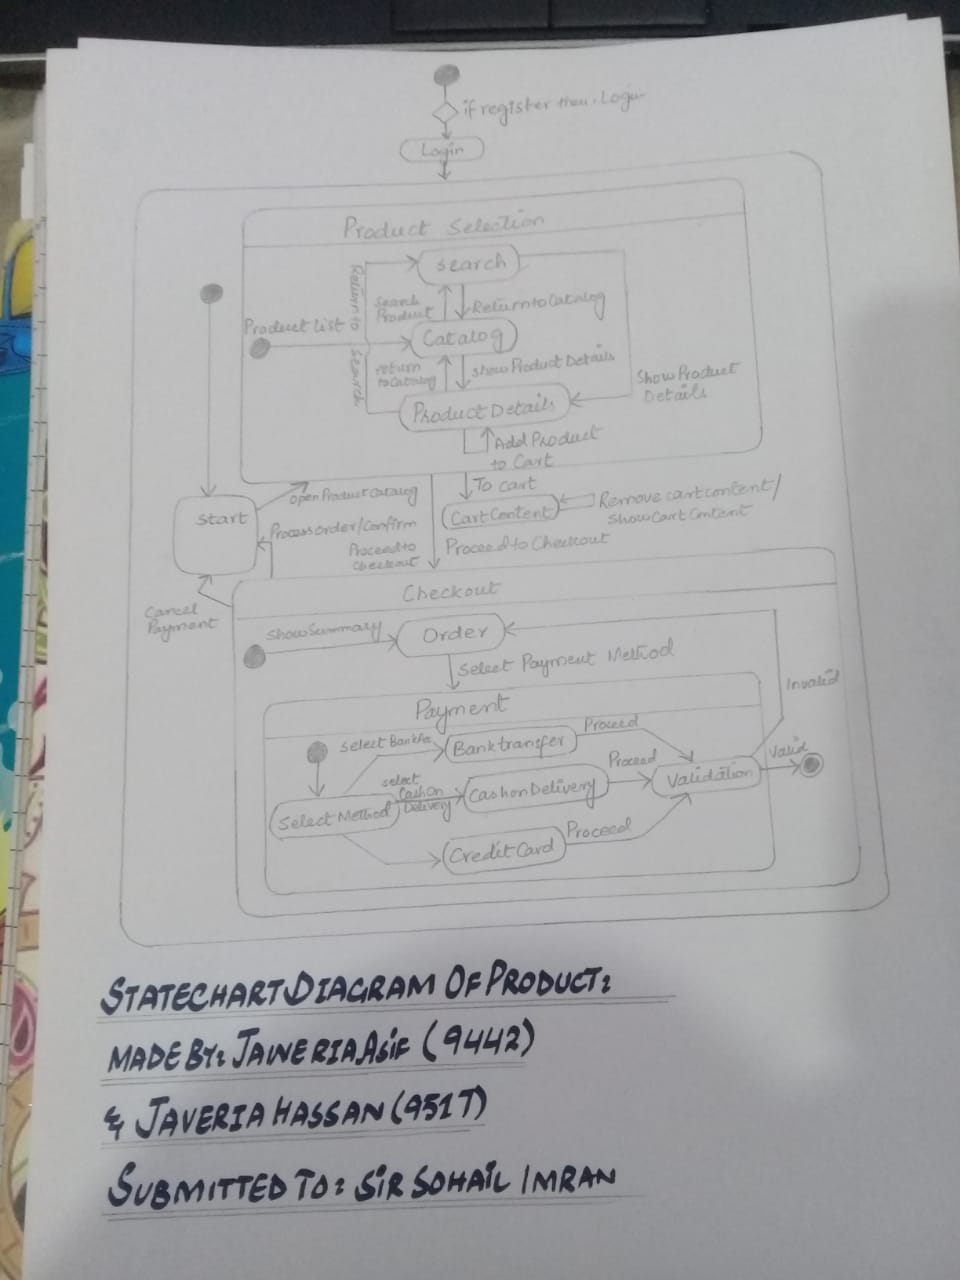 if register then Login
Login
Product Selection
Search
Return to Search
Search
Product
Return to Catalog
Product list
Catalog
return
to Catalog
show Product Details
Show Product
Details
Product Details
Add Product
to Cart
open Product Catalog
To Cart
Start
Cart Content
Remove cart content/
Show Cart Content
Process order/Confirm
Proceed to
Checkout
Proceed to Checkout
Cancel
Payment
Checkout
Show Summary
Order
Select Payment Method
Invalid
Payment
Select
Bank transfer
Proceed
select
Cash On
Delivery
Cash on Delivery
Proceed
Validation
Valid
Select Method
Credit Card
Proceed
STATECHART DIAGRAM OF PRODUCT:
MADE BY: JAWERIA Asif (9442)
& JAVERIA HASSAN (951T)
SUBMITTED TO: SIR SOHAIL IMRAN